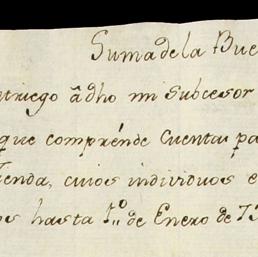 Suma de la Bue
ntriego âdho mi subcesor
que comprénde cuentas pa
ienda, cuios individuos e
os hasta 1.º de Enero de 75